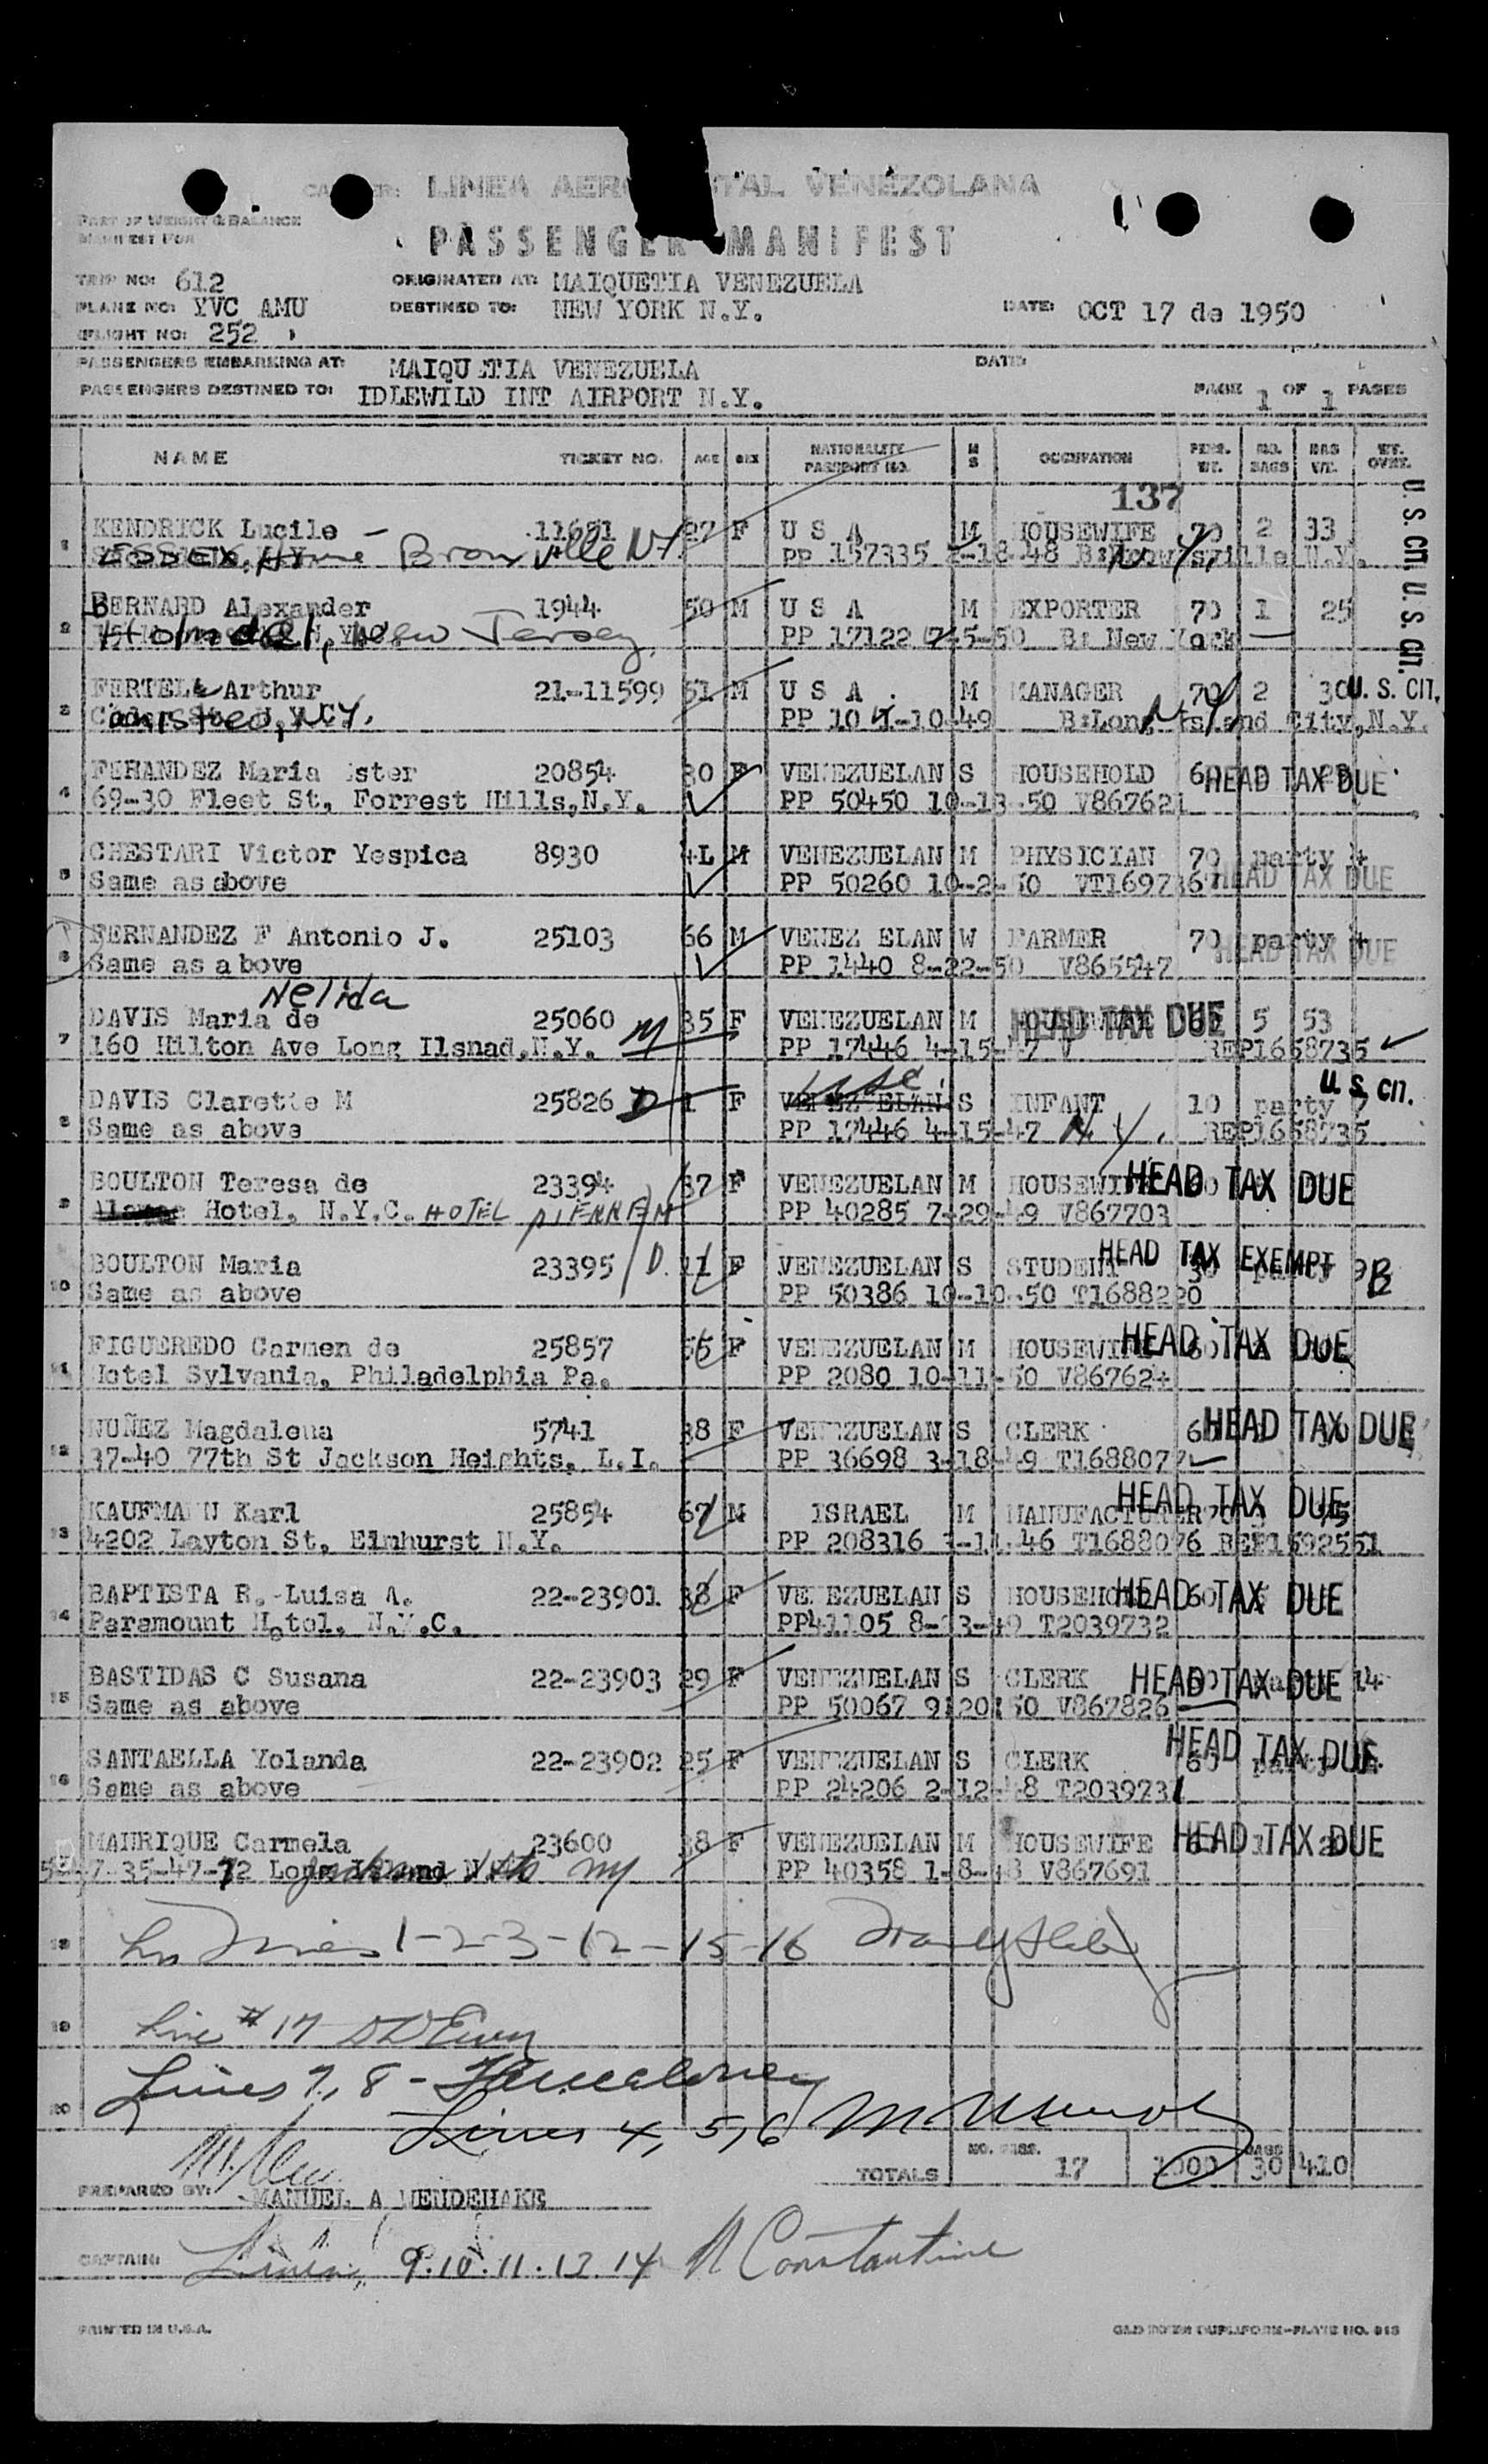 LINEA AEROPOSTAL VENEZOLANA
PART OF WEIGHT & BALANCE
MANIFEST FOR
PASSENGER MANIFEST
TRIP NO: 612 ORIGINATED AT: MAIQUETIA VENEZUELA
PLANE NO: YVC AMU DESTINED TO: NEW YORK N.Y. DATE: OCT 17 de 1950
FLIGHT NO: 252
PASSENGERS EMBARKING AT: MAIQUETIA VENEZUELA DATE:
PASSENGERS DESTINED TO: IDLEWILD INT AIRPORT N.Y. PAGE 1 OF 1 PAGES
NAME TICKET NO. AGE SEX NATIONALITY PASSPORT NO. M S OCCUPATION PERS. WT. NO. BAGS BAG WT. WT. OVER.
137
U. S. CIT. U. S. CIT.
1 KENDRICK Lucile 11651 27 F U S A M HOUSEWIFE 70 2 33
Bronxville NY PP 157335 -18-48 N.Y.
2 BERNARD Alexander 1944 50 M U S A M EXPORTER 70 1 25
Holmdel, New Jersey PP 17122 7-5-50 B: New York
3 FERTELL Arthur 21-11599 51 M U S A M MANAGER 70 2 30 U. S. CIT.
PP 10 -10-49 B:Long Island City,N.Y. NY
4 FERANDEZ Maria Ester 20854 30 F VENEZUELAN S HOUSEHOLD HEAD TAX DUE
69-30 Fleet St, Forrest Hills,N.Y. PP 50450 10-13-50 V867621
5 CHESTARI Victor Yespica 8930 4L M VENEZUELAN M PHYSICIAN 70 party 4
Same as above PP 50260 10-2-50 VT169736 HEAD TAX DUE
6 FERNANDEZ F Antonio J. 25103 66 M VENEZ ELAN W FARMER 70 party 4
Same as above PP 1440 8-22-50 V865547 HEAD TAX DUE
Nelida
7 DAVIS Maria de 25060 M 35 F VENEZUELAN M HOUSEWIFE HEAD TAX DUE 5 53
160 Hilton Ave Long Ilsnad,N.Y. PP 17446 4-15-47 V REP1658735
USC. U. S. CIT.
8 DAVIS Clarette M 25826 D 1 F VENEZ ELAN S INFANT 10 party 7
Same as above PP 17446 4-15-47 N.Y. REP1658735
9 BOULTON Teresa de 23394 37 F VENEZUELAN M HOUSEWIFE HEAD TAX DUE
Hotel, N.Y.C. HOTEL PP 40285 7-29-49 V867703
10 BOULTON Maria 23395 D. 11 F VENEZUELAN S STUDENT HEAD TAX EXEMPT party 9 B
Same as above PP 50386 10-10-50 T1688220
11 FIGUEREDO Carmen de 25857 55 F VENEZUELAN M HOUSEWIFE HEAD TAX DUE
Hotel Sylvania, Philadelphia Pa. PP 2080 10-11-50 V867624
12 NUÑEZ Magdalena 5741 38 F VENEZUELAN S CLERK HEAD TAX DUE
37-40 77th St Jackson Heights, L.I. PP 36698 3-18-49 T1688077
13 KAUFMA N Karl 25854 67 M ISRAEL M MANUFACTURER HEAD TAX DUE
4202 Layton St, Elmhurst N.Y. PP 208316 -46 T1688076 REP1592551
14 BAPTISTA R.-Luisa A. 22-23901 38 F VENEZUELAN S HOUSEHOLD HEAD TAX DUE
Paramount Hotel, N.Y.C. PP41105 8-3-49 T2039732
15 BASTIDAS C Susana 22-23903 29 F VENEZUELAN S CLERK HEAD TAX DUE 14
Same as above PP 50067 9-20-50 V867826
16 SANTAELLA Yolanda 22-23902 25 F VENEZUELAN S CLERK HEAD TAX DUE
Same as above PP 24206 2-12-48 T2039731
MANRIQUE Carmela 23600 38 F VENEZUELAN M HOUSEWIFE HEAD TAX DUE
35-47-72 Long Island NY PP 40358 1-8-48 V867691
18 Lines 1-2-3-12-15-16
19 Line #17
20 Lines 7, 8 -
Lines 4, 5, 6
TOTALS NO. PASS. 17 1000 BAGS 30 410
PREPARED BY: MANUEL A MENDEHAKE
CAPTAIN: Lines, 9.10.11.13.14 Constantine
PRINTED IN U.S.A.